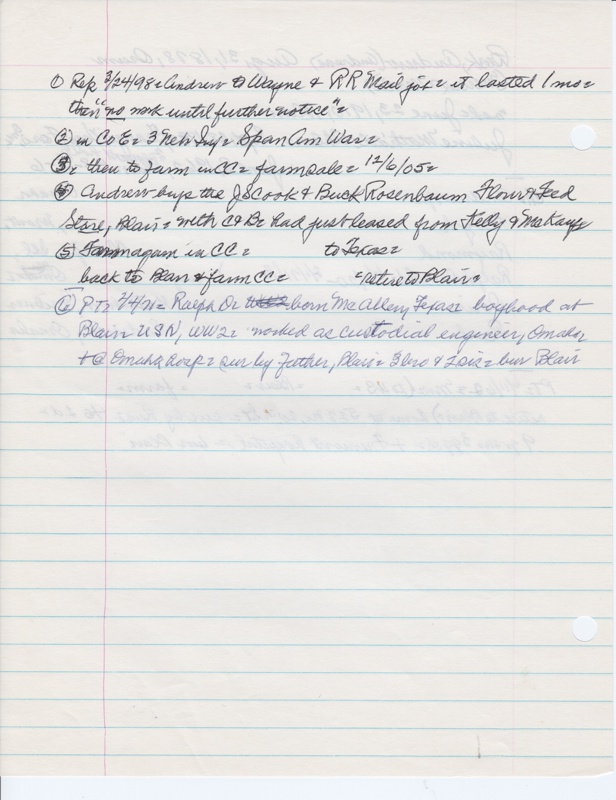 ① Rep 3/24/98 = Andrew to Wayne & RR Mail job = it lasted 1 mo =
then "no work until further notice" =
② in Co E = 3 Neb Inf = Span Am War =
③ = then to farm in CC = farm sale = 12/6/05 =
④ Andrew buys the J S Cook & Buck Rosenbaum Flour & Feed
Store, Blair = with C & B = had just leased from Kelly &
⑤ Farm again in CC = to Texas =
back to Blair & farm CC = "retire to Blair =
⑥ PT = = Ralph D = born McAllen, Texas = boyhood at
Blair = USN, WW2 = worked as custodial engineer, Omaha
+ @ Omaha hosp = sur by Father, Blair = 3 bro & 2 sis = bur Blair